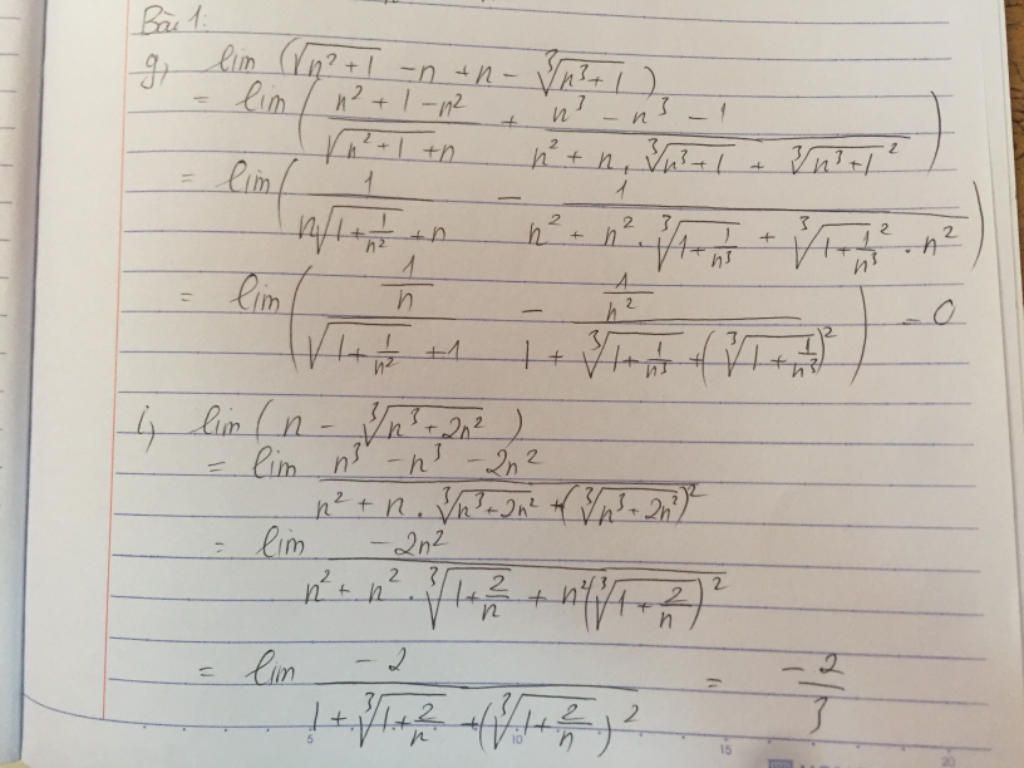 Bài 1:
g, lim (√(n²+1) - n + n - ∛(n³+1))
= lim ((n² + 1 - n²)/(√(n²+1) + n) + (n³ - n³ - 1)/(n² + n.∛(n³+1) + ∛(n³+1)²))
= lim (1/(n√(1+1/n²) + n) - 1/(n² + n².∛(1+1/n³) + ∛(1+1/n³)².n²))
= lim ((1/n)/(√(1+1/n²) + 1) - (1/n²)/(1 + ∛(1+1/n³) + (∛(1+1/n³))²)) = 0
i, lim (n - ∛(n³+2n²))
= lim (n³ - n³ - 2n²)/(n² + n.∛(n³+2n²) + (∛(n³+2n²))²)
= lim (-2n²)/(n² + n².∛(1+2/n) + n²(∛(1+2/n))²)
= lim (-2)/(1 + ∛(1+2/n) + (∛(1+2/n))²) = -2/3
5 10 15 20